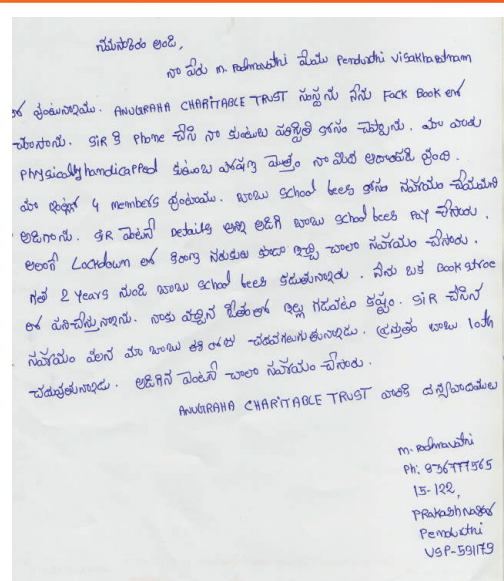 నమస్కారం అండి,
నా పేరు M. Padmavathi మేము Pendurthi Visakhapatnam
లో వుంటున్నాము. ANUGRAHA CHARITABLE TRUST సంస్థను నేను Face Book లో
చూసాను. SIR కి Phone చేసి నా కుటుంబ పరిస్థితి కోసం చెప్పాను. మా వారు
Physically handicapped కుటుంబ పోషణ మొత్తం నా మీద ఆధారపడి వుంది.
మా ఇంట్లో 4 members వుంటాము. బాబు School bees కోసం సహాయం చేయమని
అడిగాను. SIR వెంటనే Details అన్ని అడిగి బాబు School bees Pay చేసారు.
అలాగే Lockdown లో కిరాణా సరుకులు కూడా ఇచ్చి చాలా సహాయం చేసారు.
గత 2 Years నుండి బాబు School bees కడుతున్నారు. నేను ఒక Book stroe
లో పనిచేస్తున్నాను. నాకు వచ్చిన జీతంతో ఇల్లు గడవటం కష్టం. SIR చేసిన
సహాయం వలన మా బాబు ఈ రోజు చదవగలుగుతున్నాడు. ప్రస్తుతం బాబు 10th
చదువుతున్నాడు. అడిగిన వెంటనే చాలా సహాయం చేసారు.
ANUGRAHA CHARITABLE TRUST వారికి ధన్యవాదములు
M. Padmavathi
Ph: 936777565
15-122,
PRakash Nagar
Pendurthi
VSP-531173